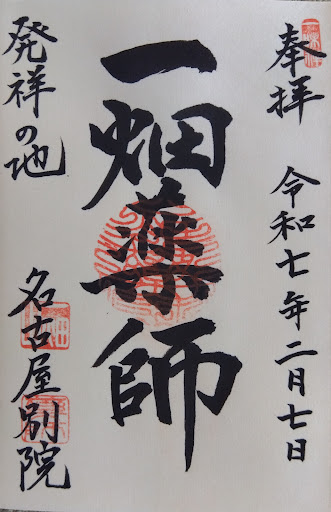 奉拝 令和七年二月七日
一畑薬師
発祥の地
名古屋別院